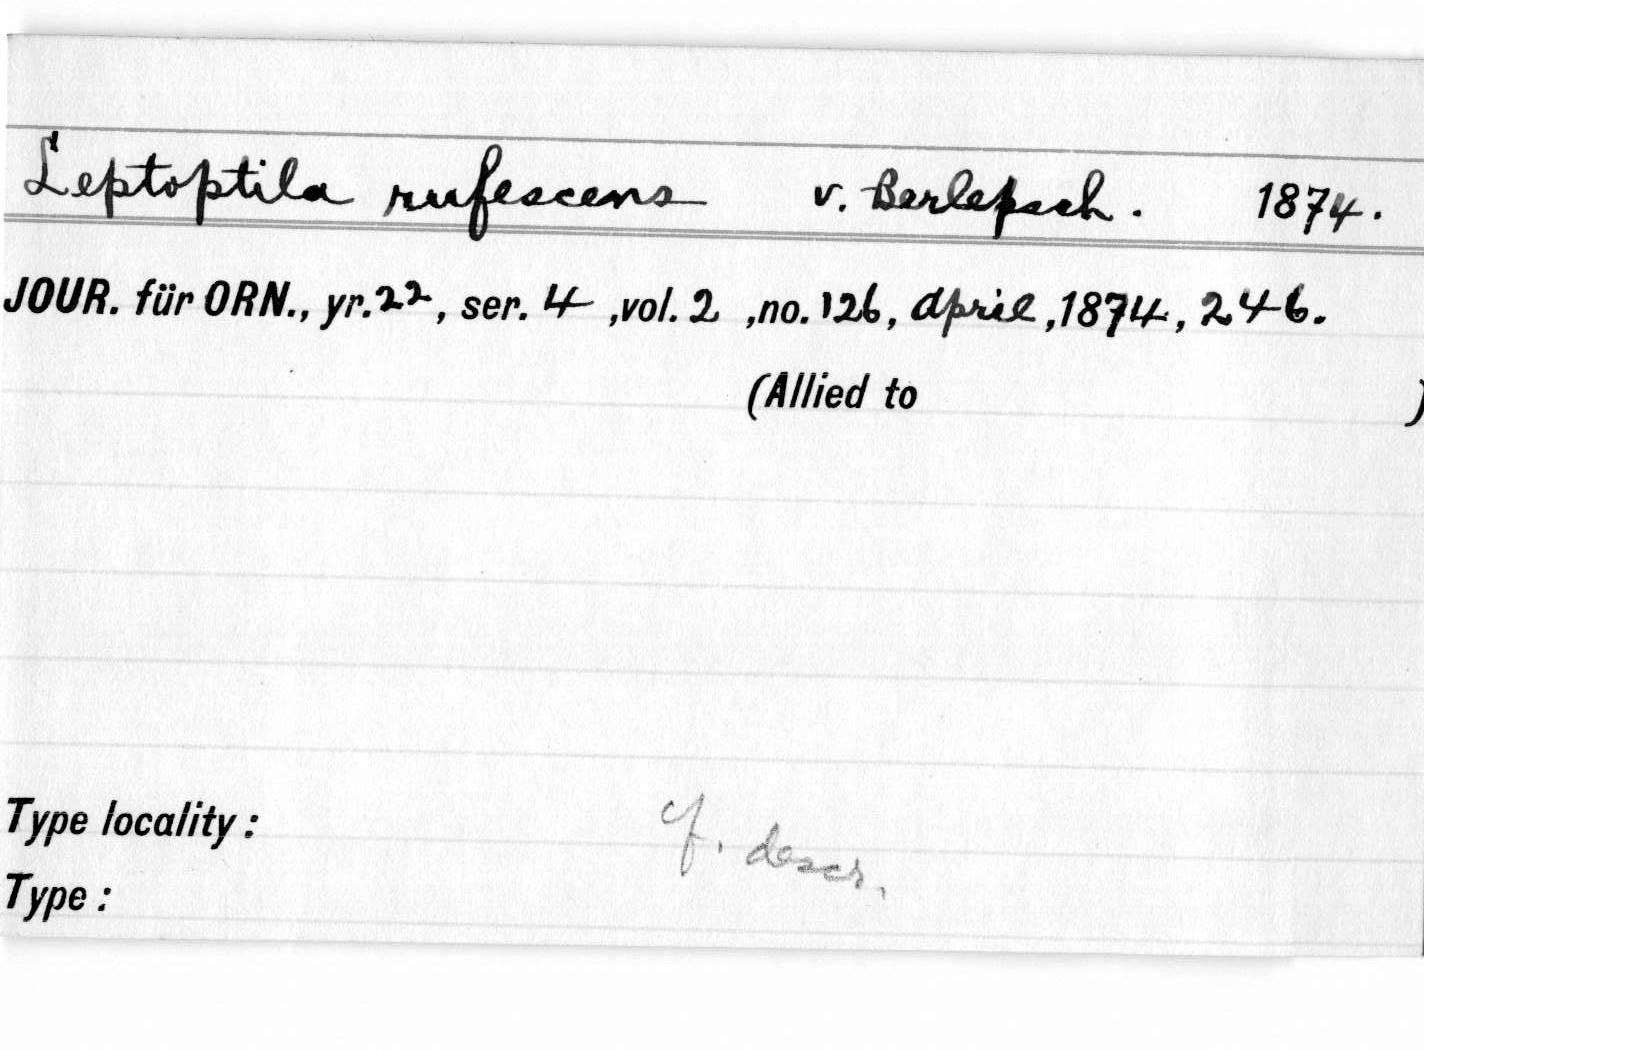 Leptoptila rufescens v. Berlepsch. 1874.
JOUR. für ORN., yr. 22, ser. 4, vol. 2, no. 126, April, 1874, 246.
(Allied to )
Type locality :
cf. descr.
Type :